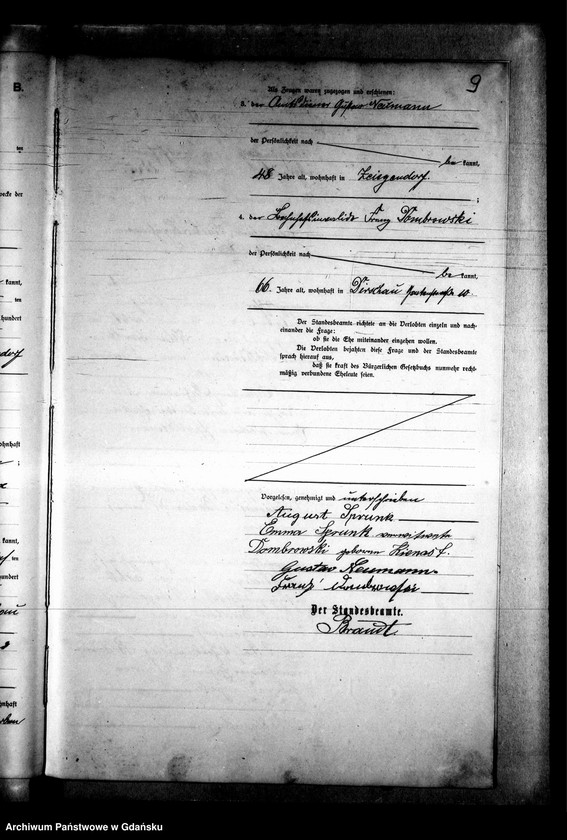 B.
9
Als Zeugen waren zugezogen und erschienen:
3. der Amtsdiener Gustav Neumann
der Persönlichkeit nach
be kannt,
48 Jahre alt, wohnhaft in Zeisgendorf
;
4. der Bahnhofsinvalide Franz Dombrowski
der Persönlichkeit nach
be kannt,
66 Jahre alt, wohnhaft in Dirschau 10
Der Standesbeamte richtete an die Verlobten einzeln und nach-
einander die Frage:
ob sie die Ehe miteinander eingehen wollen.
Die Verlobten bejahten diese Frage und der Standesbeamte
sprach hierauf aus,
daß sie kraft des Bürgerlichen Gesetzbuchs nunmehr recht-
mäßig verbundene Eheleute seien.
Vorgelesen, genehmigt und unterschrieben
August Sprunk
Emma Sprunk verwitwete
Dombrowski geborene
Gustav Neumann
Franz Dombrowski
Der Standesbeamte.
Brandt
Archiwum Państwowe w Gdańsku